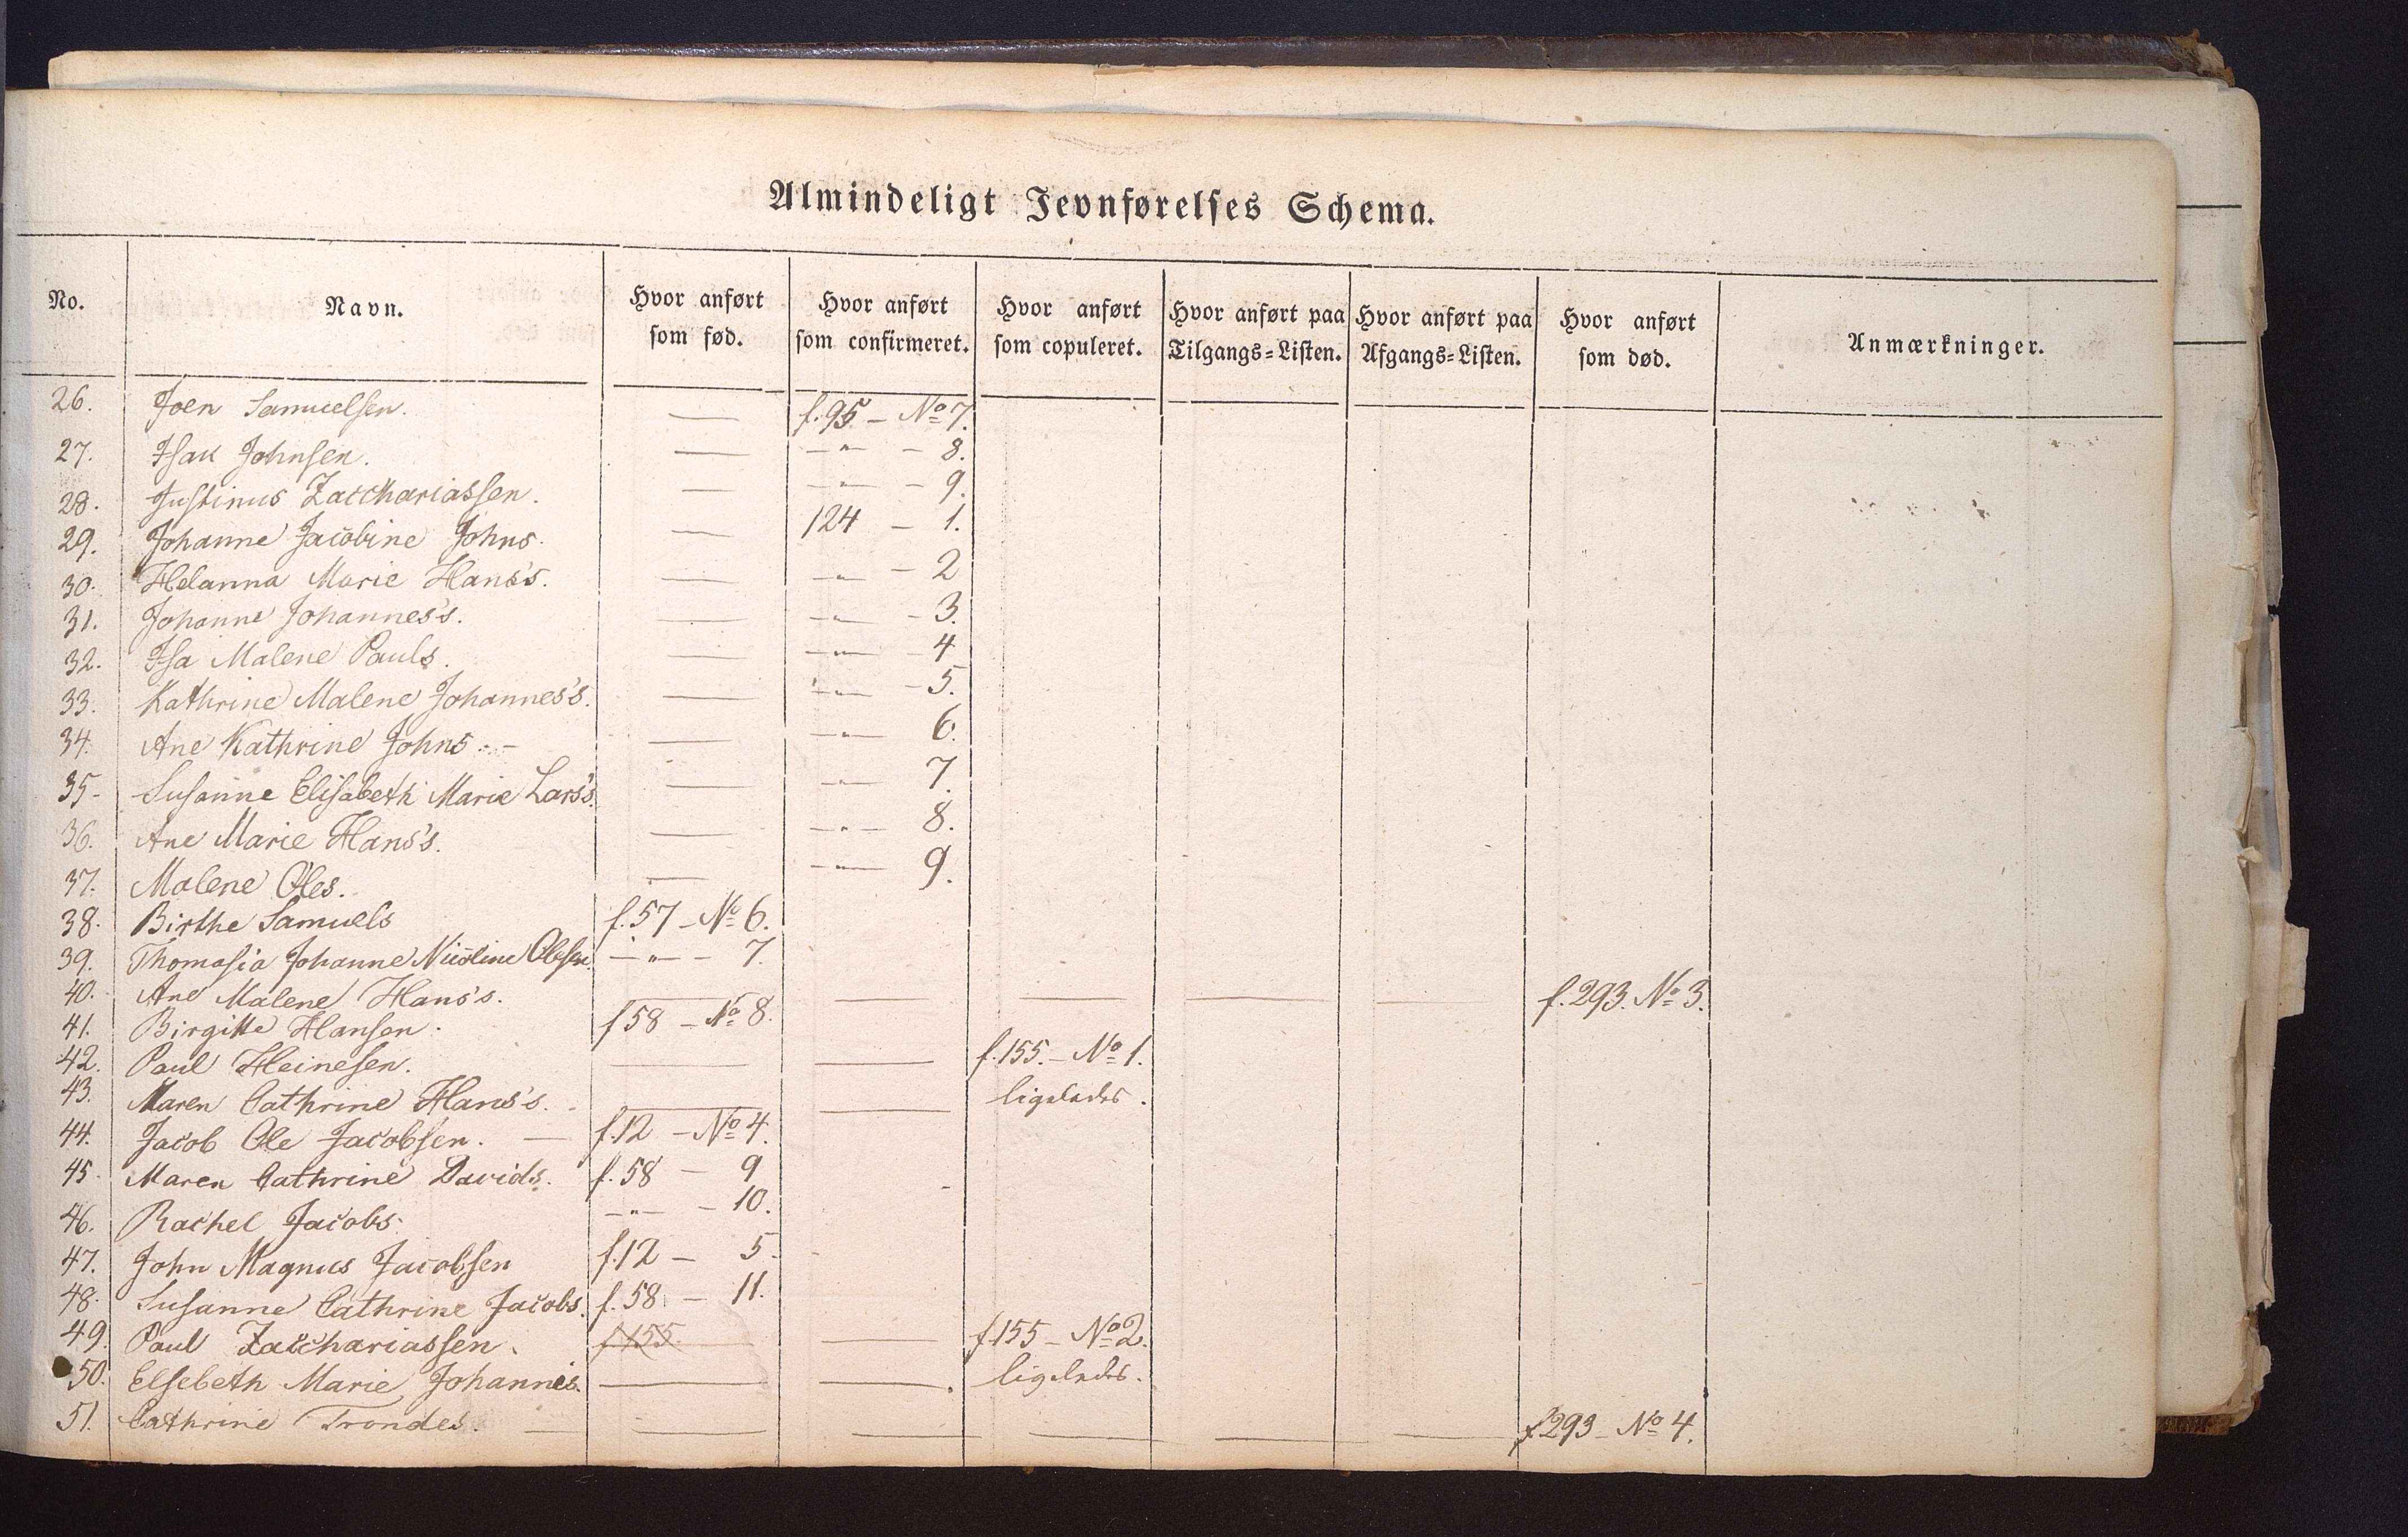 Almindeligt Jevnførelses Schema.
No. Navn. Hvor anført som fød. Hvor anført som confirmeret. Hvor anført som copuleret. Hvor anført paa Tilgangs=Listen. Hvor anført paa Afgangs=Listen. Hvor anført som død. Anmærkninger.
26. Joen Samuelsen. — f. 95 – No 7.
27. Isak Johnsen. — –"– – 8.
28. Justinus Zacchariassen. — –"– – 9.
29. Johanne Jacobine Johns. — 124 – 1.
30. Helanna Marie Hans's. — –"– – 2
31. Johanne Johannes's. — –"– – 3.
32. Isa Malene Pauls. — –"– – 4
33. Kathrine Malene Johannes's. — –"– – 5.
34. Ane Kathrine Johns. – — –"– 6.
35. Susanne Elisabeth Marie Lars's. — –"– 7.
36. Ane Marie Hans's. — –"– 8.
37. Malene Oles. — –"– 9.
38. Birthe Samuels f. 57 – No 6.
39. Thomasia Johanne Nicoline Olesen. –"– – 7.
40. Ane Malene Hans's. — — — — — f. 293. No 3.
41. Birgitte Hansen. f 58 – No 8.
42. Paul Heinesen. — — f. 155. – No 1.
43. Maren Cathrine Hans's. — — ligeledes.
44. Jacob Ole Jacobsen. — f. 12 – No 4.
45. Maren Cathrine Davids. f. 58 – 9
46. Rachel Jacobs. –"– – 10.
47. John Magnus Jacobsen f. 12 – 5.
48. Susanne Cathrine Jacobs. f. 58 – 11.
49. Paul Zacchariassen. f 155 — f 155 – No 2.
50. Elsebeth Marie Johannes. — — . ligeledes.
51. Cathrine Trondes. — — — — — — f 293 – No 4.